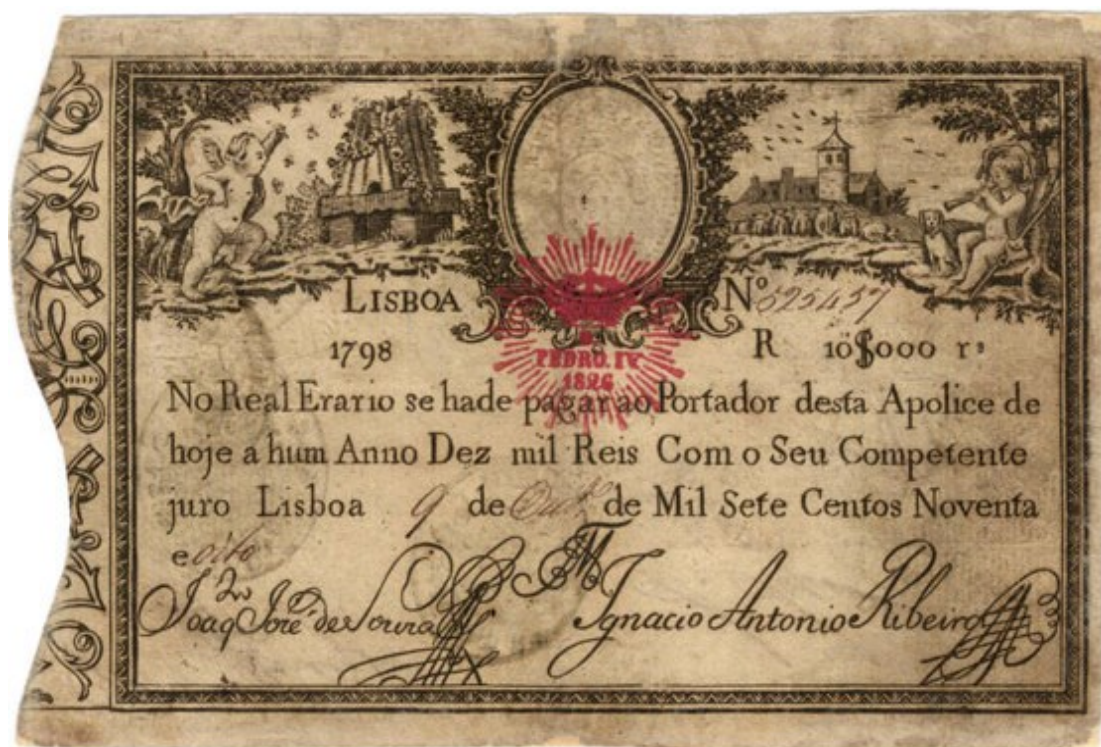 LISBOA
Nº 525457
1798
R 10$000 rs
PEDRO. IV
1826
No Real Erario se hade pagar ao Portador desta Apolice de
hoje a hum Anno Dez mil Reis Com o Seu Competente
juro Lisboa 9 de Outº de Mil Sete Centos Noventa
e oito
Joaqm José de Souza
Ignacio Antonio Ribeiro